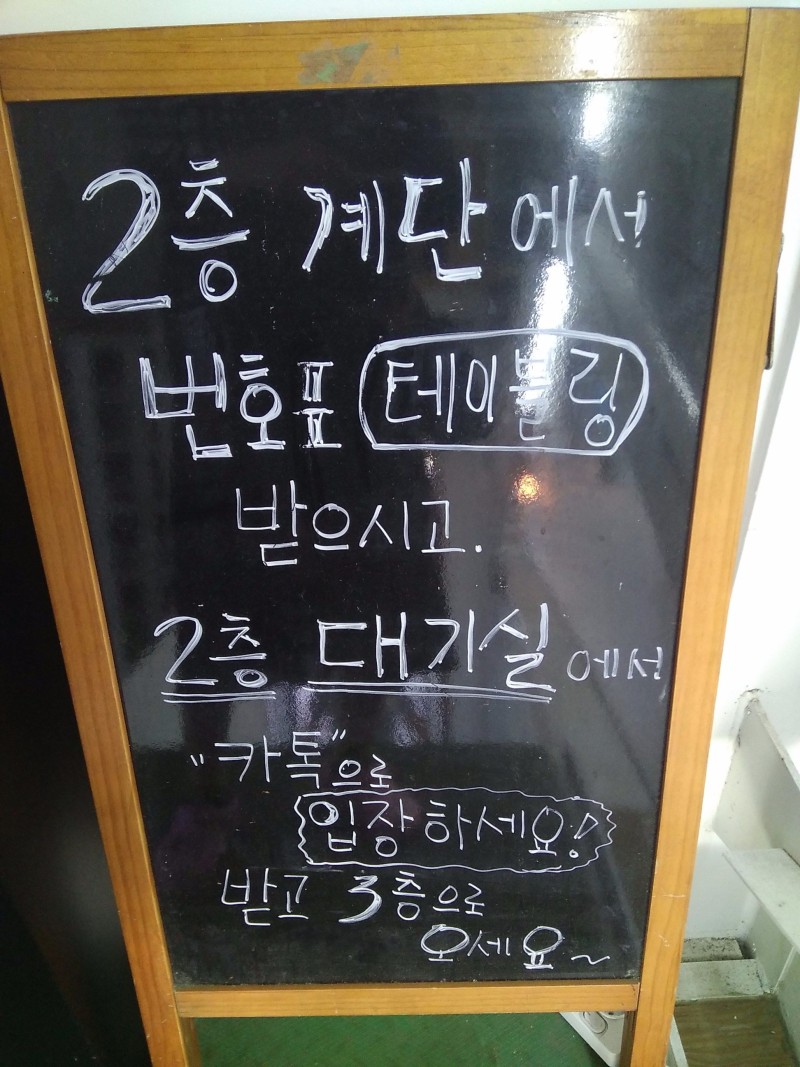 2층 계단에서
번호표 테이블링
받으시고.
2층 대기실에서
"카톡"으로
입장하세요!
받고 3층으로
오세요~